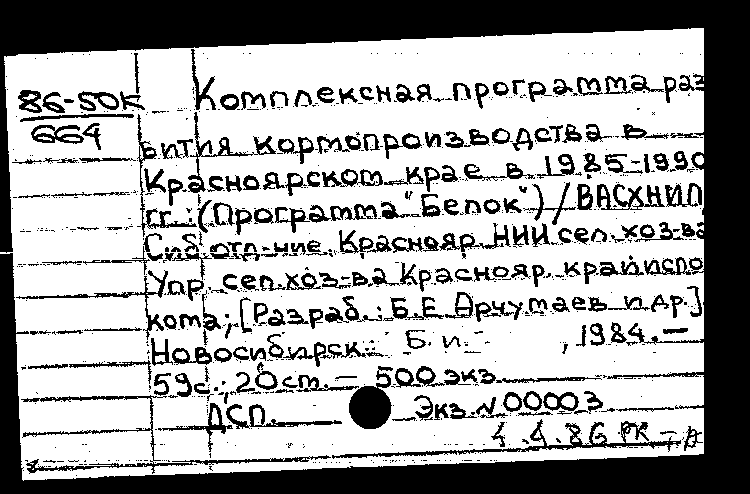 86-50К
664
Комплексная программа раз
вития кормопроизводства в
Красноярском крае в 1985-1990
гг.: (Программа "Белок") / ВАСХНИЛ
Сиб. отд-ние, Краснояр. НИИ сел. хоз-ва
Упр. сел. хоз-ва Краснояр. крайиспо
кома; [Разраб.: Б.Е. Арчумаев и др.]
Новосибирск: Б. и. , 1984. —
59 с.; 20 см. — 500 экз.
ДСП. Экз. N 00003
4.4.86 РК